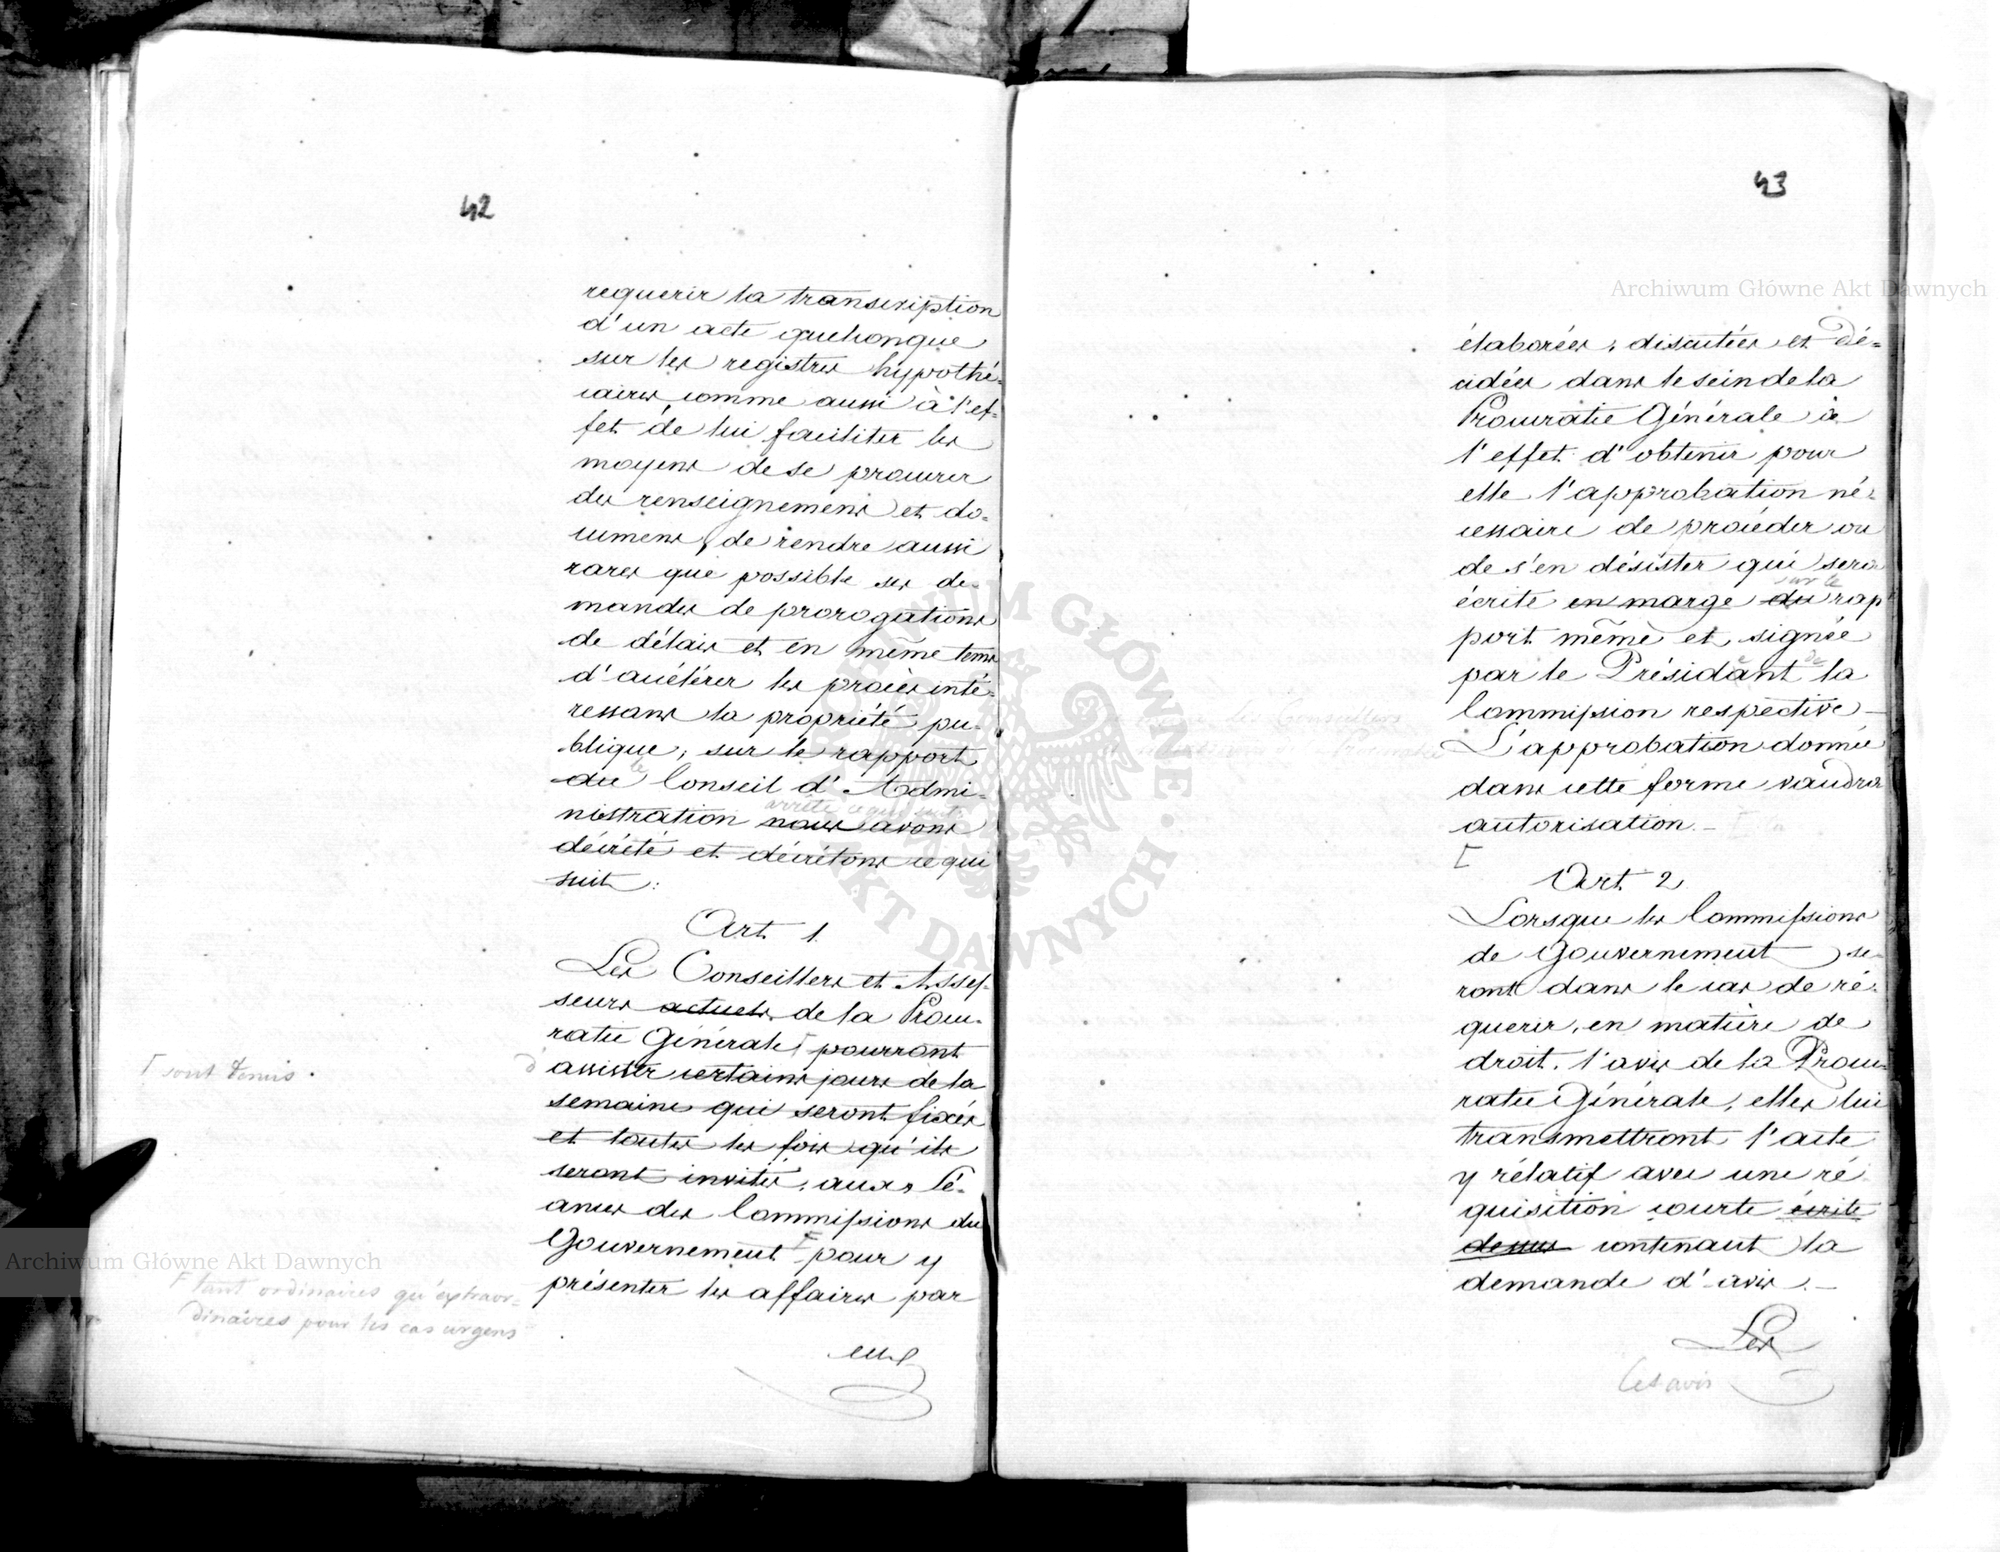 42
requerir la transcription
d'un acte quelconque
sur les registres hypothé-
caires, comme aussi à l'ef-
fet de lui faciliter les
moyens de se procurer
des renseignemens et do-
cumens, de rendre aussi
rares que possible ses de-
mandes de prorogations
de délais et en même tems
d'accélérer les procès inté-
ressans la propriété pu-
blique, sur le rapport
du le Conseil d'Admi-
arrête ce qui suit
nistration nous avons
décrété et décrétons ce qui
suit:
Art. 1.
Les Conseillers et Asses-
seurs actuels de la Procu-
ratie Générale pourront
sont tenus
d'
assister certains jours de la
semaine qui seront fixés
et toutes les fois qu'ils
seront invités, aux Sé-
ances des Commissions du
Gouvernement pour y
tant ordinaires qu'extraor-
dinaires pour les cas urgens
présenter les affaires par
eux
43
élaborées, discutées et dé-
cidées dans le sein de la
Procuratie Générale à
l'effet d'obtenir pour
elle l'approbation né-
cessaire de procéder ou
de s'en désister qui sera
sur le
écrite en marge du rap
port même et signée
par le Présidant de la
Commission respective —
L'approbation donnée
dans cette forme vaudra
autorisation. —
Art. 2
Lorsque les Commissions
de Gouvernement se-
ront dans le cas de ré-
querir, en matière de
droit, l'avis de la Procu-
ratie Générale, elles lui
transmettront l'acte
y rélatif avec une ré-
quisition courte écrite
dessus contenant la
demande d'avis. —
Les
Les avis
Archiwum Główne Akt Dawnych
Archiwum Główne Akt Dawnych
ARCHIWUM GŁÓWNE AKT DAWNYCH